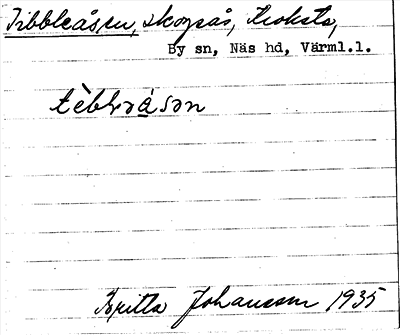 Tibbleåsen, skogsås, Kroksta,
By sn, Näs hd, Värml.l.
tèbḷəåsən
Britta Johansson 1935